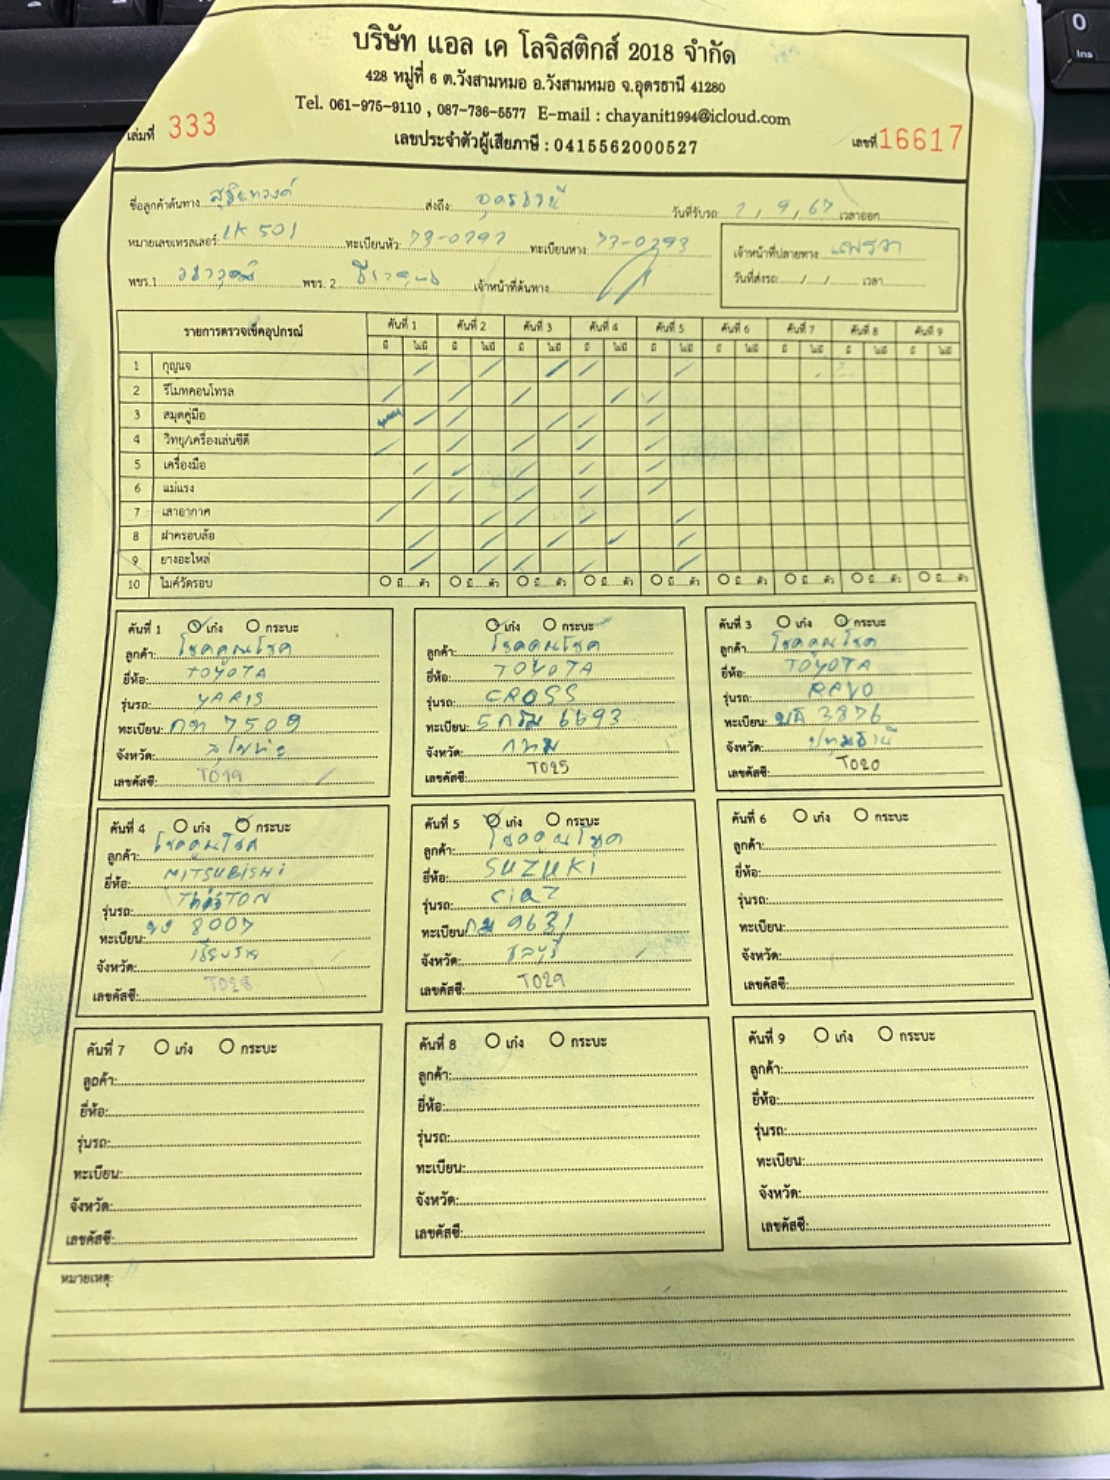 บริษัท แอล เค โลจิสติกส์ 2018 จำกัด
428 หมู่ที่ 6 ต.วังสามหมอ อ.วังสามหมอ จ.อุดรธานี 41280
Tel. 061-975-9110 , 087-736-5577 E-mail : chayanit1994@icloud.com
เล่มที่ 333 เลขประจำตัวผู้เสียภาษี : 0415562000527 เลขที่ 16617
ชื่อลูกค้าต้นทาง ส่งถึง อุดรธานี วันที่รับรถ 2, 9, 67 เวลาออก
หมายเลขเทรลเลอร์: LK 501 ทะเบียนหัว: 73-0292 ทะเบียนหาง: 73-0293
เจ้าหน้าที่ปลายทาง แพรวา
พขร.1 พขร. 2 เจ้าหน้าที่ต้นทาง
วันที่ส่งรถ / / เวลา
รายการตรวจเช็คอุปกรณ์ คันที่ 1 คันที่ 2 คันที่ 3 คันที่ 4 คันที่ 5 คันที่ 6 คันที่ 7 คันที่ 8 คันที่ 9
มี ไม่มี มี ไม่มี มี ไม่มี มี ไม่มี มี ไม่มี มี ไม่มี มี ไม่มี มี ไม่มี มี ไม่มี
1 กุญแจ
2 รีโมทคอนโทรล
3 สมุดคู่มือ
4 วิทยุ/เครื่องเล่นซีดี
5 เครื่องมือ
6 แม่แรง
7 เสาอากาศ
8 ฝาครอบล้อ
9 ยางอะไหล่
10 ไมค์วัดรอบ มี ตัว มี ตัว มี ตัว มี ตัว มี ตัว มี ตัว มี ตัว มี ตัว มี ตัว
คันที่ 1 เก๋ง กระบะ
ลูกค้า: โชคคูณโชค
ยี่ห้อ: TOYOTA
รุ่นรถ: YARIS
ทะเบียน: 7509
จังหวัด: สุโขทัย
เลขคัสซี: T019
เก๋ง กระบะ
ลูกค้า: โชคคูณโชค
ยี่ห้อ: TOYOTA
รุ่นรถ: CROSS
ทะเบียน: 6693
จังหวัด: กทม
เลขคัสซี: T025
คันที่ 3 เก๋ง กระบะ
ลูกค้า: โชคคูณโชค
ยี่ห้อ: TOYOTA
รุ่นรถ: REVO
ทะเบียน: 3876
จังหวัด: ปทุมธานี
เลขคัสซี: T020
คันที่ 4 เก๋ง กระบะ
ลูกค้า: โชคคูณโชค
ยี่ห้อ: MITSUBISHI
รุ่นรถ: TON
ทะเบียน: 8007
จังหวัด: เชียงราย
เลขคัสซี: T028
คันที่ 5 เก๋ง กระบะ
ลูกค้า: โชคคูณโชค
ยี่ห้อ: SUZUKI
รุ่นรถ: Ciaz
ทะเบียน: 9631
จังหวัด: ชลบุรี
เลขคัสซี: T029
คันที่ 6 เก๋ง กระบะ
ลูกค้า:
ยี่ห้อ:
รุ่นรถ:
ทะเบียน:
จังหวัด:
เลขคัสซี:
คันที่ 7 เก๋ง กระบะ
ลูกค้า:
ยี่ห้อ:
รุ่นรถ:
ทะเบียน:
จังหวัด:
เลขคัสซี:
คันที่ 8 เก๋ง กระบะ
ลูกค้า:
ยี่ห้อ:
รุ่นรถ:
ทะเบียน:
จังหวัด:
เลขคัสซี:
คันที่ 9 เก๋ง กระบะ
ลูกค้า:
ยี่ห้อ:
รุ่นรถ:
ทะเบียน:
จังหวัด:
เลขคัสซี:
หมายเหตุ: